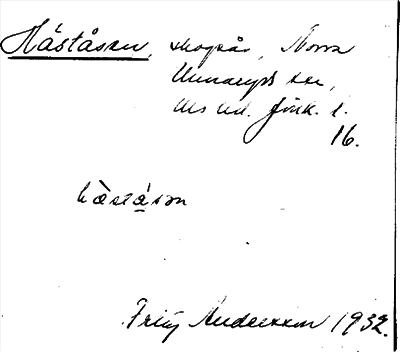 Håståsen, skogsås, Norra
Unnaryds sn,
Mo hd. Jönk. l.
16.
hå̀stǻsən
Fritz Andersson 1932.